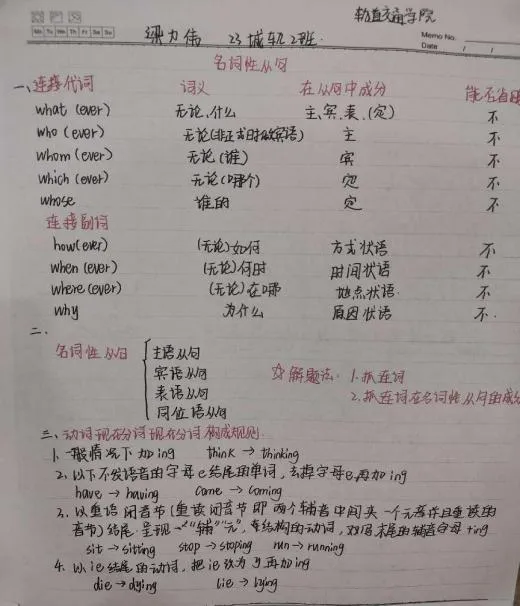 轨道交通学院
Mo Tu We Th Fr Sa Su
梁力伟 23城轨2班
Memo No.
Date / /
名词性从句
一、连接代词 词义 在从句中成分 能否省略
what (ever) 无论,什么 主、宾、表、(定) 不
who (ever) 无论(非正式时做宾语) 主 不
whom (ever) 无论(谁) 宾 不
which (ever) 无论(哪个) 定 不
whose 谁的 定 不
连接副词
how(ever) (无论)如何 方式状语 不
when (ever) (无论)何时 时间状语 不
where (ever) (无论)在哪 地点状语. 不
why 为什么 原因状语 不.
二.
名词性从句 主语从句
宾语从句 ☆解题法: 1.抓连词
表语从句 2.抓连词在名词性从句的成分
同位语从句
三、动词现在分词现在分词构成规则.
1、一般情况下加ing think → thinking
2、以下不发语音的字母e结尾的单词,去掉字母e再加ing
have → having come → coming
3、以重语闭音节(重读闭音节即两个辅音中间夹一个元音并且重读的
音节)结尾.呈现一"辅""元",结构的动词,双写末尾的辅音字母+ing
sit → sitting stop → stoping run → running
4、以ie结尾的动词,把ie改为y再加ing
die → dying lie → lying